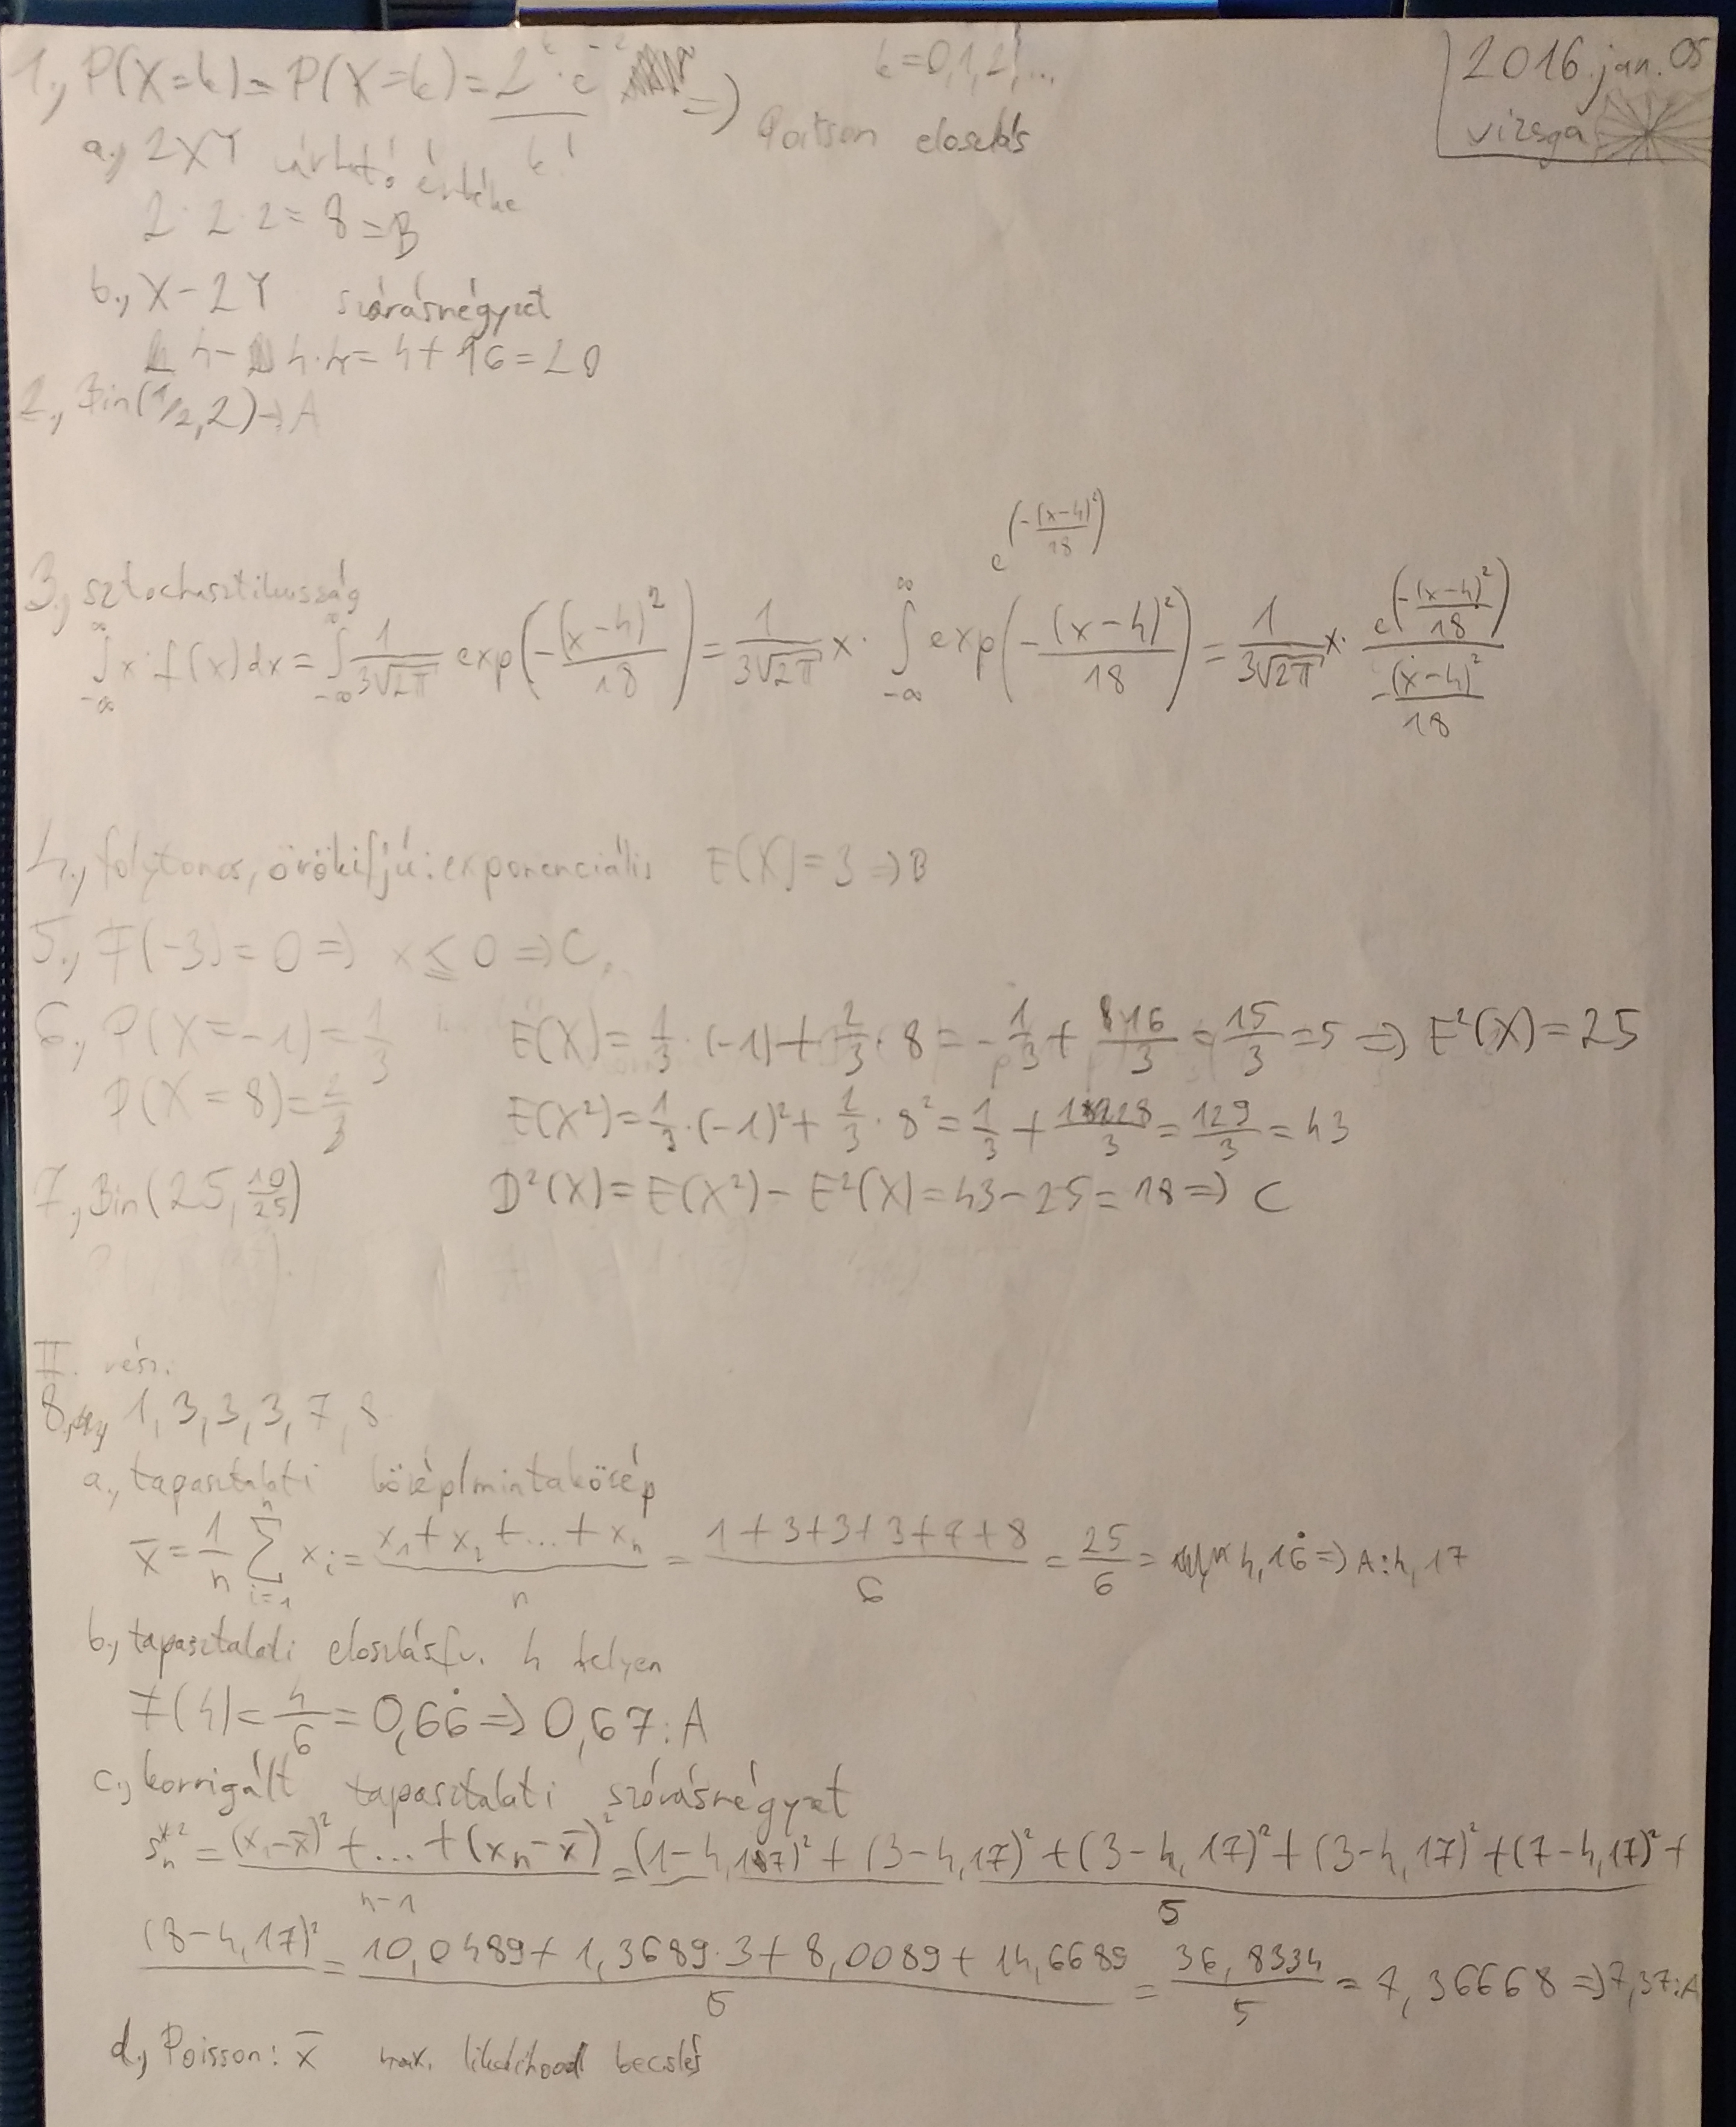 2016. jan. 05
vizsga
1., P(X=k)= P(X=k)= 2^k · e^-2 / k! => k=0,1,2,...
Poisson eloszlás
a., 2XY várható értéke
2 · 2 · 2 = 8 = B
b., X-2Y szórásnégyzet
4- 4·4= 4+16=20
2., Bin(1/2,2)→A
e^(-(x-4)²/18)
3., sztochasztikusság
∫_{-∞}^{∞} x·f(x)dx = ∫_{-∞}^{∞} 1/(3√2π) exp(-(x-4)²/18) = 1/(3√2π) x · ∫_{-∞}^{∞} exp(-(x-4)²/18) = 1/(3√2π) x · e^(-(x-4)²/18) / (-(x-4)²/18)
4., folytonos, örökifjú: exponenciális E(X)=3 => B
5., F(-3)=0 => x ≤ 0 => C
6., P(X=-1)=1/3 E(X)= 1/3 · (-1)+ 2/3 · 8 = -1/3 + 16/3 = 15/3 =5 => E²(X)=25
P(X=8)=2/3 E(X²)= 1/3 · (-1)² + 2/3 · 8² = 1/3 + 128/3 = 129/3 = 43
7., Bin(25, 10/25) D²(X)= E(X²)- E²(X)=43-25=18 => C
II. rész.
8., 1, 3, 3, 3, 7, 8
a., tapasztalati közép/mintaközép
x̄ = 1/n ∑_{i=1}^{n} x_i = (x_1+x_2+...+x_n)/n = (1+3+3+3+7+8)/6 = 25/6 = 4,16̇ => A: 4,17
b., tapasztalati eloszlásfv. 4 helyen
F(4)= 4/6 = 0,66̇ => 0,67: A
c., korrigált tapasztalati szórásnégyzet
s_n^*² = ((x_1-x̄)²+...+(x_n-x̄)²)/(n-1) = (1-4,17)² + (3-4,17)² + (3-4,17)² + (3-4,17)² + (7-4,17)² + / 5
(8-4,17)² = (10,0489+1,3689·3+8,0089+14,6689)/5 = 36,8334/5 = 7,36668 => 7,37: A
d., Poisson: x̄ max. likelihood becslés